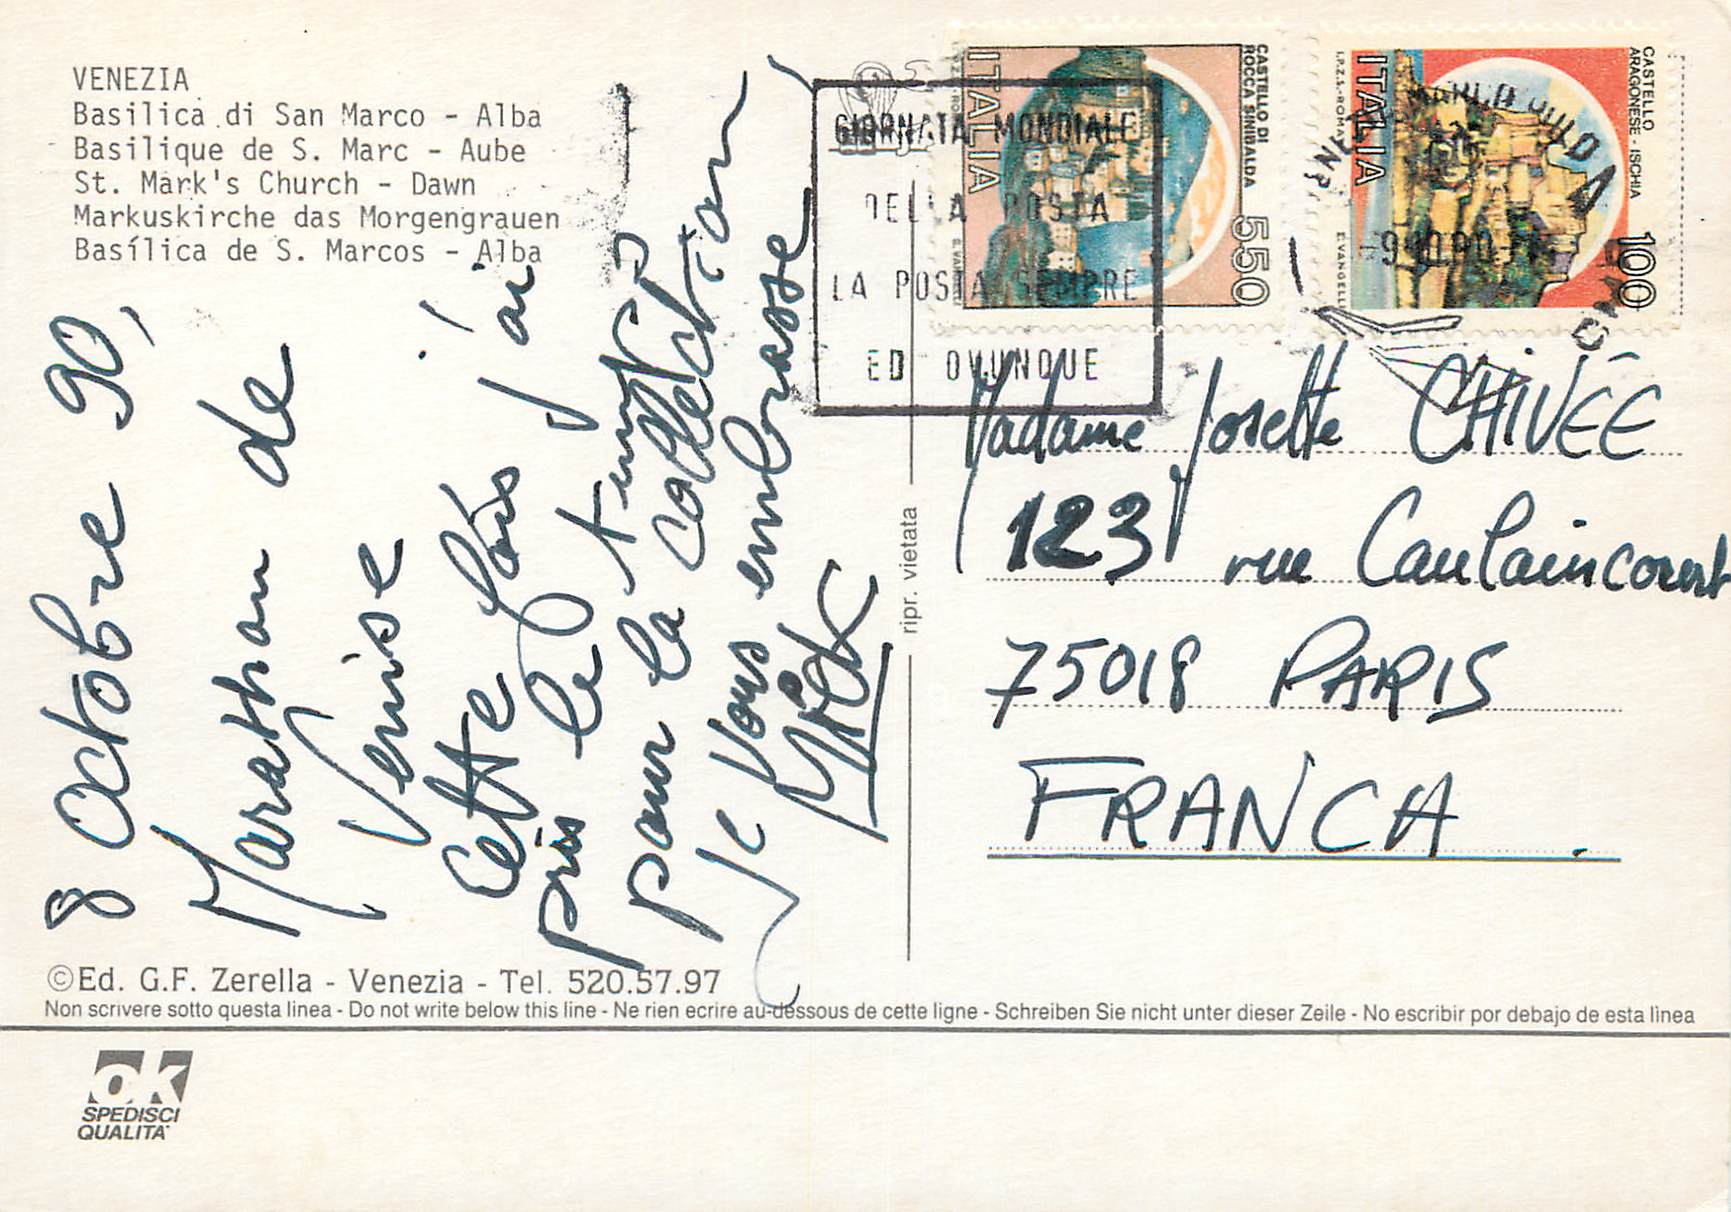 VENEZIA
Basilica di San Marco - Alba
Basilique de S. Marc - Aube
St. Mark's Church - Dawn
Markuskirche das Morgengrauen
Basílica de S. Marcos - Alba
8 Octobre 90,
Marathon de
Venise
Cette fois j'ai
pris le temps
pour la collection
je vous embrasse
©Ed. G.F. Zerella - Venezia - Tel. 520.57.97
Non scrivere sotto questa linea - Do not write below this line - Ne rien ecrire au-dessous de cette ligne - Schreiben Sie nicht unter dieser Zeile - No escribir por debajo de esta lìnea
ok
SPEDISCI
QUALITA'
ripr. vietata
GIORNATA MONDIALE
DELLA POSTA
LA POSTA SEMPRE
ED OVUNQUE
CASTELLO DI
ROCCA SINIBALDA
550
ITALIA
CASTELLO
ARAGONESE - ISCHIA
100
ITALIA
I.P.Z.S. - ROMA
E. VANGELLI
Madame Josette CHIVÉE
123 rue Caulaincourt
75018 PARIS
FRANCIA.